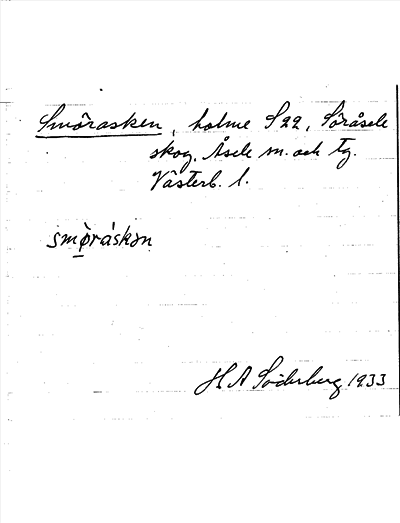 Smörasken, holme S 22, Söråsele
skog, Åsele sn. och tg.
Västerb. l.
smø̀ráskən
H A Söderberg 1933